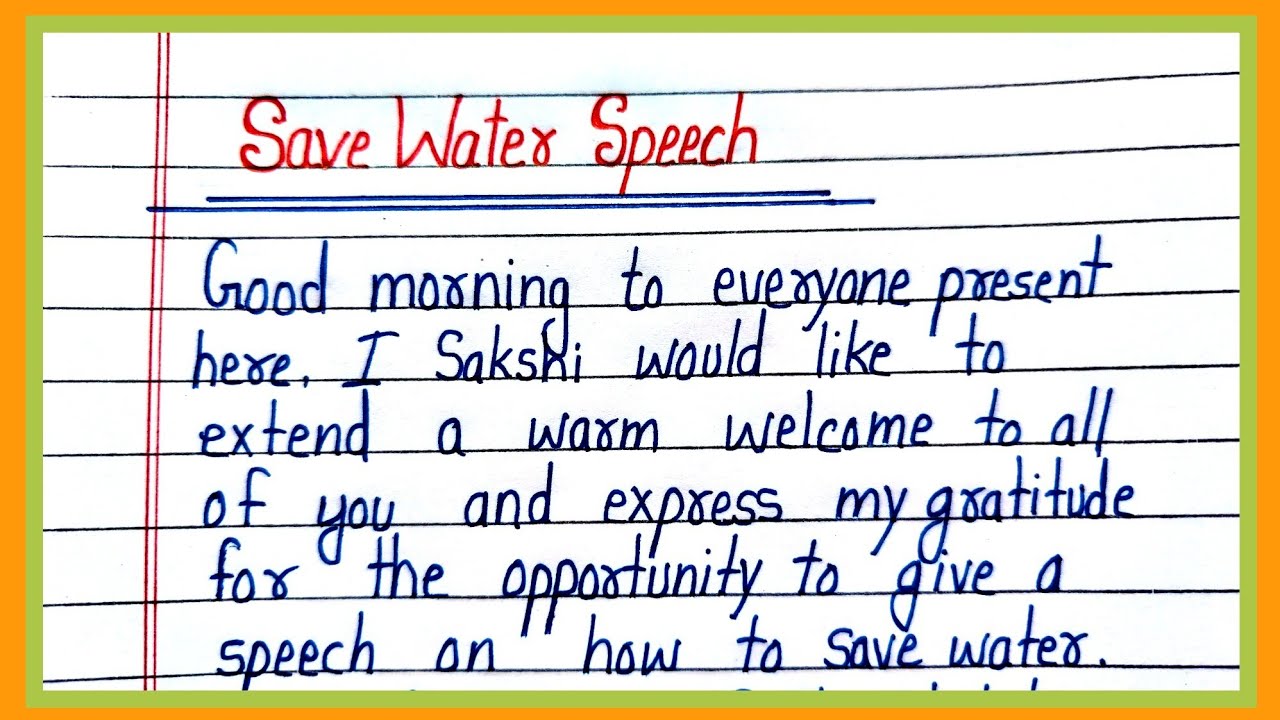 Save Water Speech
Good morning to everyone present
here. I Sakshi would like to
extend a warm welcome to all
of you and express my gratitude
for the opportunity to give a
speech on how to save water.